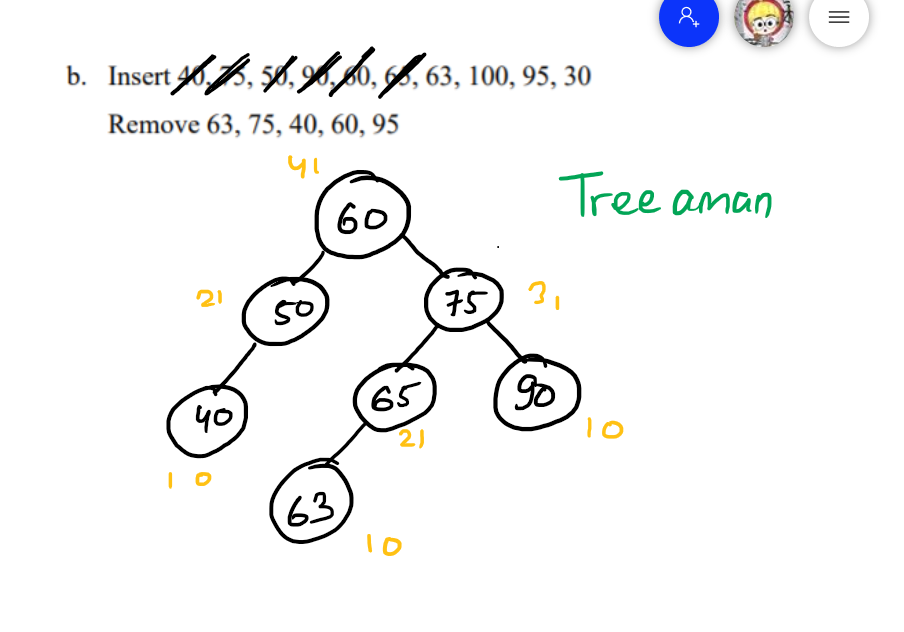 b. Insert 40, 75, 50, 90, 60, 65, 63, 100, 95, 30
Remove 63, 75, 40, 60, 95
41
60
Tree aman
21
50
75
31
40
65
90
21
10
10
63
10